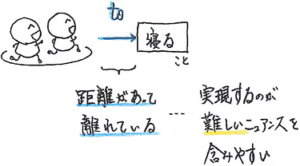 to
寝る
こと
距離があって
離れている
…
実現するのが
難しいニュアンスを
含みやすい